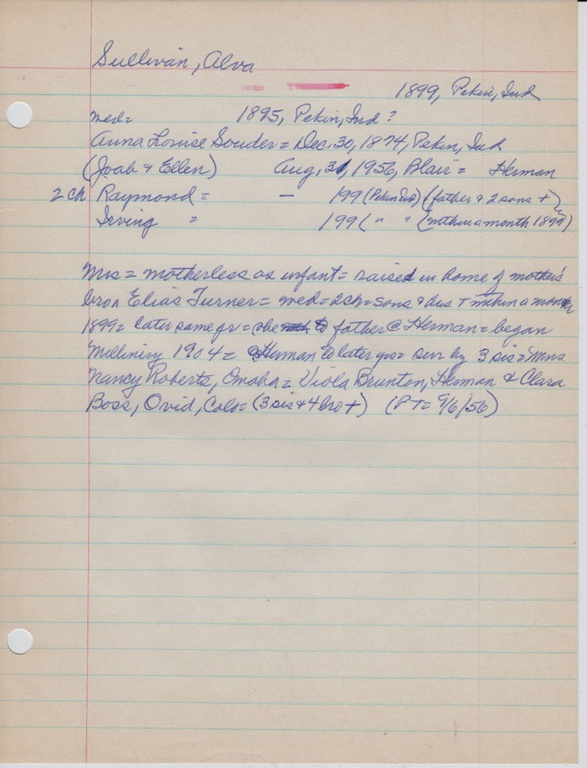 Sullivan, Alva
1899, Pekin, Ind
wed= 1895, Pekin, Ind ?
Anna Louise Souder = Dec. 30, 1874, Pekin, Ind
(Joab & Ellen) Aug. 31, 1956, Blair = Herman
2 ch Raymond = — 199 (Pekin Ind) (father & 2 sons +
Irving = 199 ( " " (within a month 1899)
Mrs = motherless as infant = raised in home of mother's
bro Elias Turner = wed = 2 ch = sons & hus + within a month
1899 = later same yr = she to father @ Herman = began
Millinery 1904 = Herman to later yrs = surv by 3 sis = Mmes
Nancy Roberts, Omaha = Viola Brunton, Herman & Clara
Boss, Ovid, Colo = (3 sis & 4 bro +) (PT = 9/6/56)